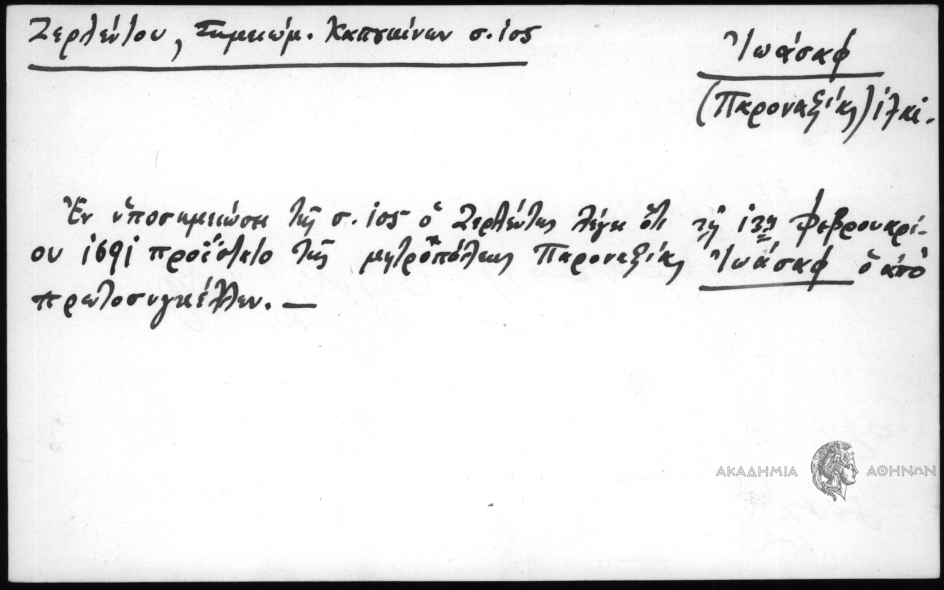 Ζερλέντου, Σημειώμ. Καπουκίνων σ. 105
Ἰωάσαφ
(Παροναξίας)
Ἐν ὑποσημειώσει τῆς σ. 105 ὁ Ζερλέντης λέγει ὅτι τῇ Φεβρουαρί-
ου 1691 προΐστατο τῆς μητροπόλεως Παροναξίας Ἰωάσαφ ὁ ἀπὸ
πρωτοσυγκέλλων. —
ΑΚΑΔΗΜΙΑ ΑΘΗΝΩΝ